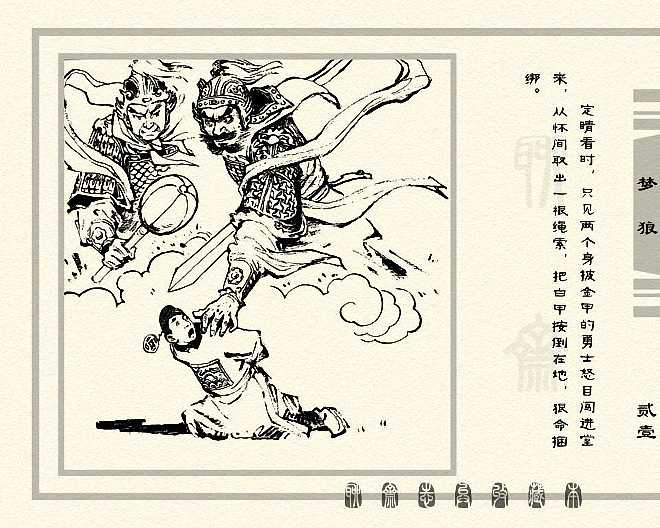 梦狼
贰壹
定晴看时，只见两个身披金甲的勇士怒目闯进堂
来，从怀间取出一根绳索，把白甲按倒在地，狠命捆
绑。
聊斋志异收藏本